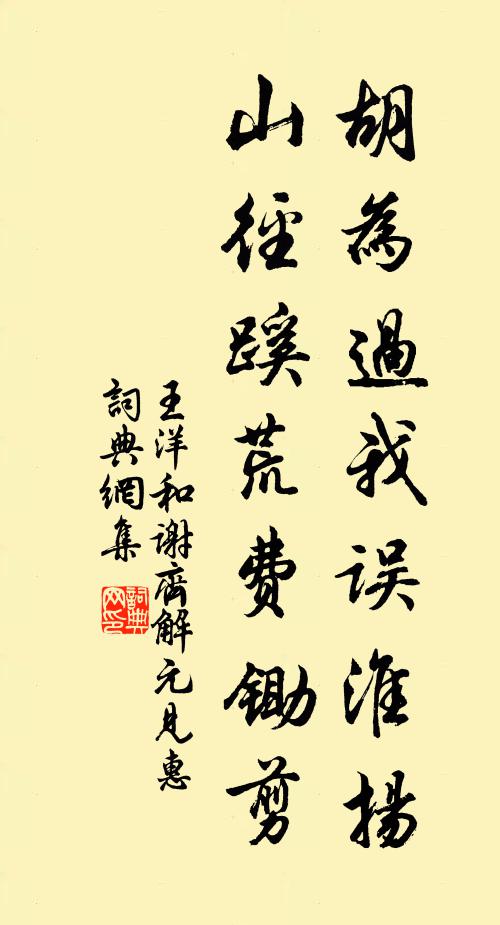 胡為過我誤淮揚
山徑蹊荒費鋤剪
王洋和謝齊解元見惠
詞典網集
詞典网印